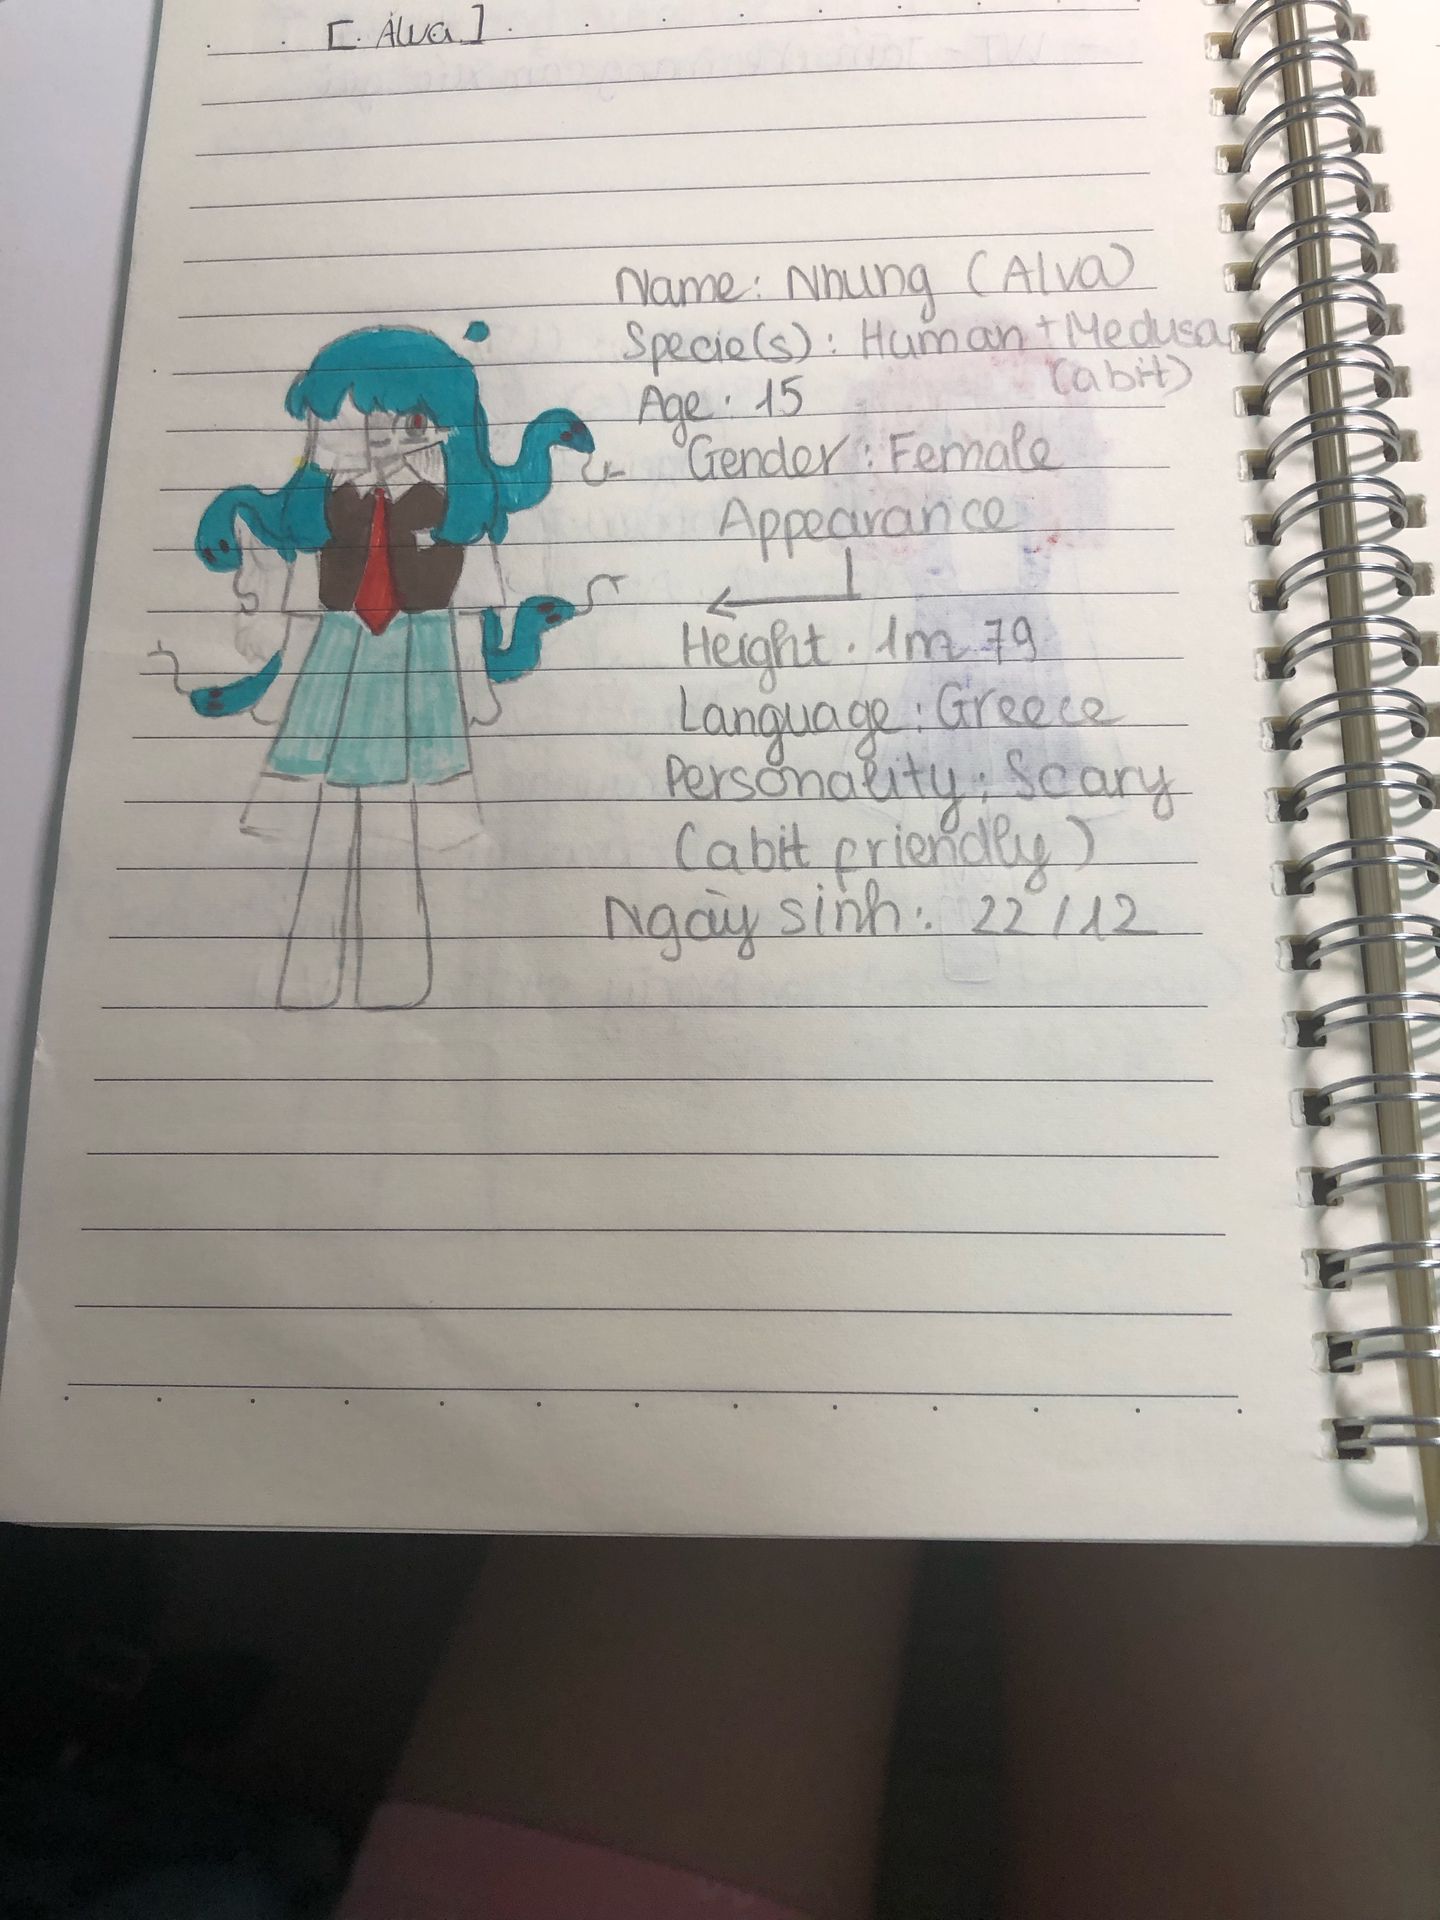 [. Alva.]
Name: Nhung (Alva)
Specie(s): Human + Medusa
(abit)
Age: 15
Gender: Female
Appearance
Height: 1m 79
Language: Greece
Personality: Scary
(abit friendly)
Ngày sinh: 22/12